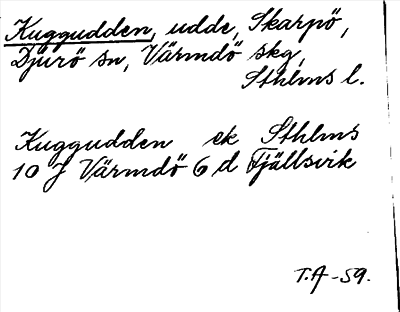 Kuggudden, udde, Skarpö,
Djurö sn, Värmdö skg,
Sthlms l.
Kuggudden ek Sthlms
10 J Värmdö 6 d Fjällsvik
T.A -59.